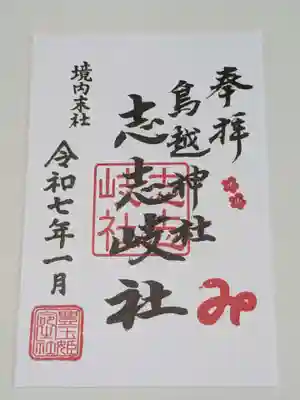 奉拝
鳥越神社
志志岐社
境内末社
令和七年一月
み
志志岐社